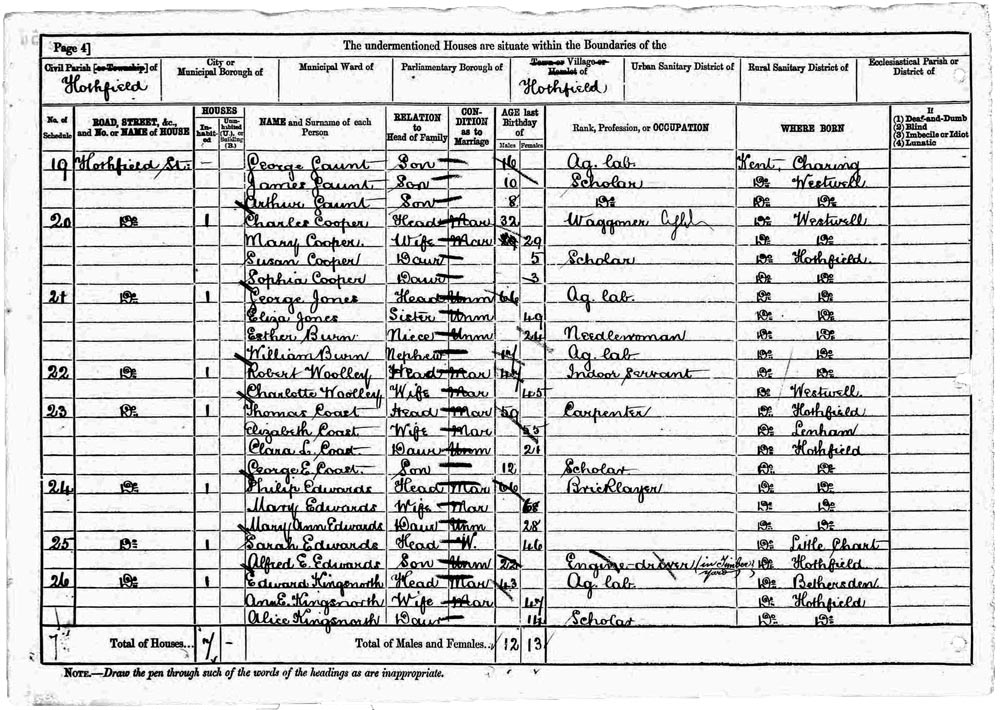 Page 4]
The undermentioned Houses are situate within the Boundaries of the
Civil Parish [or Township] of
City or Municipal Borough of
Municipal Ward of
Parliamentary Borough of
Town or Village or Hamlet of
Urban Sanitary District of
Rural Sanitary District of
Ecclesiastical Parish or District of
Hothfield
Hothfield
No. of Schedule
ROAD, STREET, &c., and No. or NAME of HOUSE
HOUSES
In-habit-ed
Unin-habited (U.), or Building (B.)
NAME and Surname of each Person
RELATION to Head of Family
CON-DITION as to Marriage
AGE last Birthday of
Males
Females
Rank, Profession, or OCCUPATION
WHERE BORN
If
(1) Deaf-and-Dumb
(2) Blind
(3) Imbecile or Idiot
(4) Lunatic
19 Hothfield St. – George Gaunt Son 16 Ag. lab. Kent, Charing
James Gaunt Son 10 Scholar Do Westwell
Arthur Gaunt Son 8 Do Do Do
20 Do 1 Charles Cooper Head Mar 32 Waggoner Do Westwell
Mary Cooper Wife Mar 29 Do Do
Susan Cooper Daur 5 Scholar Do Hothfield
Sophia Cooper Daur 3 Do Do
21 Do 1 George Jones Head Unm 66 Ag. lab. Do Do
Eliza Jones Sister Unm 49 Do Do
Esther Burn Niece Unm 24 Needlewoman Do Do
William Burn Nephew 17 Ag. lab Do Do
22 Do 1 Robert Woolley Head Mar Indoor Servant Do Do
Charlotte Woolley Wife Mar 45 Do Westwell
23 Do 1 Thomas Coast Head Mar 59 Carpenter Do Hothfield
Elizabeth Coast Wife Mar 55 Do Lenham
Clara L. Coast Daur Unm 21 Do Hothfield
George E. Coast Son 12 Scholar Do Do
24 Do 1 Philip Edwards Head Mar 66 Bricklayer Do Do
Mary Edwards Wife Mar 68 Do Do
Mary Ann Edwards Daur Unm 28 Do Do
25 Do 1 Sarah Edwards Head W. 46 Do Little Chart
Alfred E. Edwards Son Unm 22 Engine-driver (in Timber yard) Do Hothfield
26 Do 1 Edward Kingsnorth Head Mar 43 Ag. lab. Do Bethersden
Ann E. Kingsnorth Wife Mar 47 Do Hothfield
Alice Kingsnorth Daur 14 Scholar Do Do
7 Total of Houses... 7 – Total of Males and Females.. 12 13
NOTE.—Draw the pen through such of the words of the headings as are inappropriate.